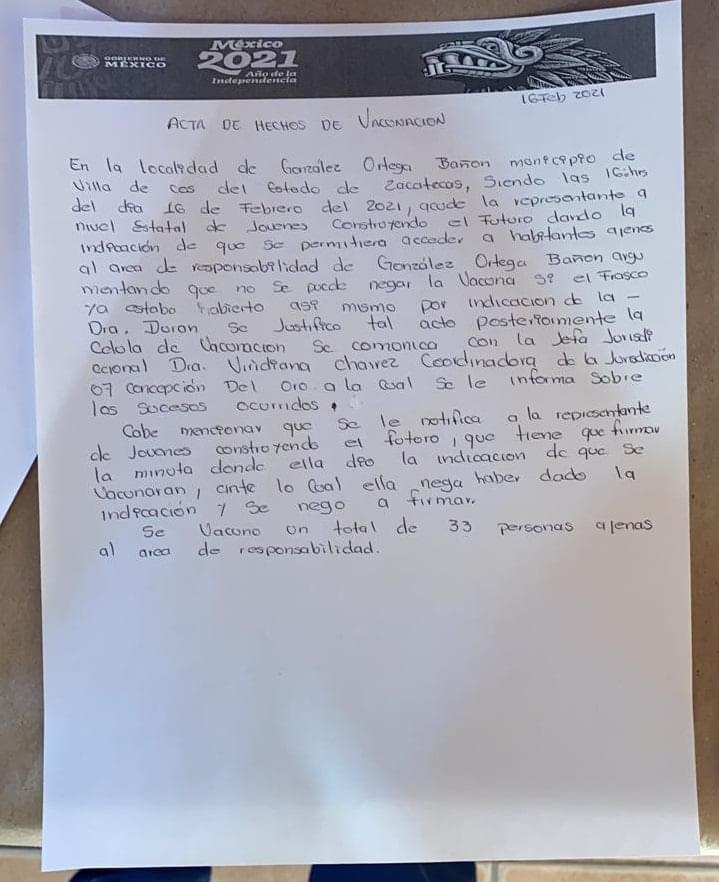 GOBIERNO DE
MÉXICO
México
2021
Año de la
Independencia
16 Feb 2021
ACTA DE HECHOS DE VACUNACION
En la localidad de González Ortega Bañon municipio de
Villa de cos del Estado de Zacatecas, Siendo las 16:hrs
del día 16 de Febrero del 2021, acude la representante a
nivel Estatal de Jovenes Construyendo el Futuro dando la
indicación de que se permitiera acceder a habitantes ajenos
al area de responsabilidad de González Ortega Bañon argu
mentando que no se puede negar la Vacuna si el Frasco
ya estaba abierto asi mismo por indicacion de la -
Dra. Duran se Justifico tal acto posteriormente la
Celula de Vacunacion Se comunica con la Jefa Jurisdi
ccional Dra. Viridiana Chavez Coordinadora de la Jurisdiccion
07 Concepción Del Oro a la cual se le informa Sobre
los Sucesos ocurridos.
Cabe mencionar que se le notifica a la representante
de Jovenes construyendo el futuro, que tiene que firmar
la minuta donde ella dio la indicacion de que se
Vacunaran, ante lo cual ella nega haber dado la
indicación y se nego a firmar.
Se Vacuno un total de 33 personas ajenas
al area de responsabilidad.